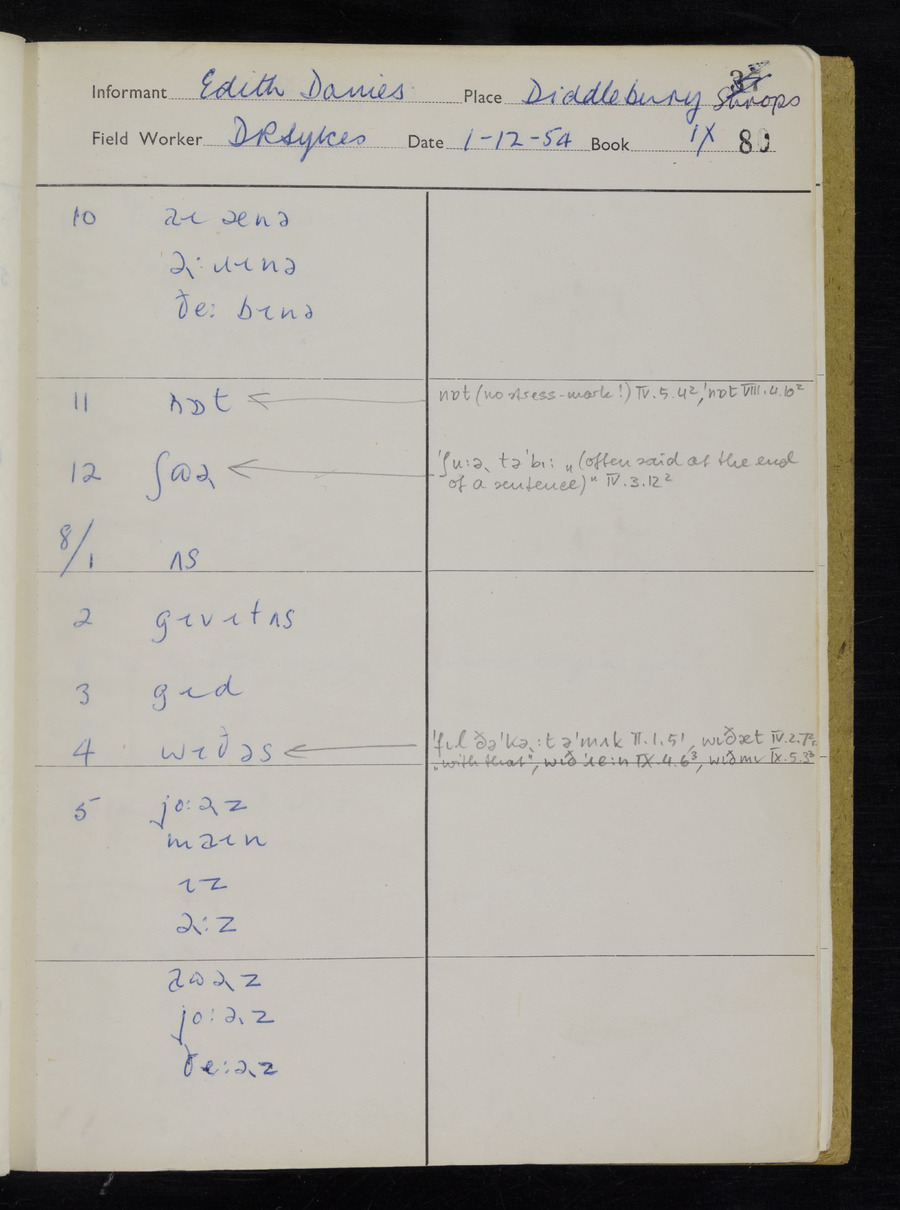 Informant Edith Davies Place Diddlebury Shrops
Field Worker DRSykes Date 1-12-54 Book IX 80
10 əɪ æɛnə
ə˞: ɪɛnə
ðe: bɪnə
11 nɒt
nɒt (no stress-mark!) IV.5.4², ˈnɒt VIII.4.10²
12 ʃɷə˞
ˈʃu:ə˞ təˈbɪ: „(often said at the end
of a sentence)" IV.3.12²
8/1 ʌs
2 gɪvɪtʌs
3 gɪd
4 wɪðəs
wɪðæt IV.2.7²
„with that", IX.4.6³, wɪðmɪ IX.5.3³
5 jo:ə˞z
məɪn
ɪz
ə˞:z
əɷə˞z
jo:ə˞z
ðe:ə˞z